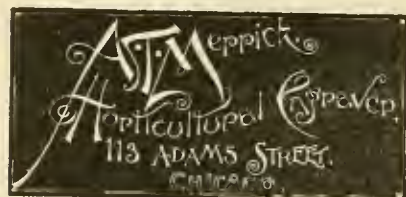 A.T. Merrick.
Horticultural Engraver,
113 ADAMS STREET.
CHICAGO.